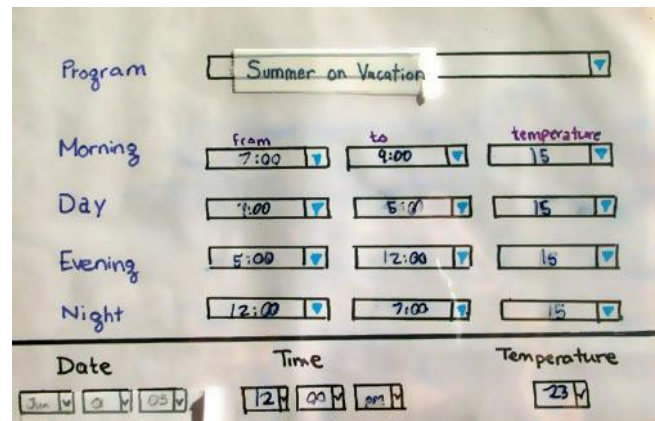 Program Summer on Vacation
from to temperature
Morning 7:00 9:00 15
Day 9:00 5:00 15
Evening 5:00 12:00 15
Night 12:00 7:00 15
Date Time Temperature
Jun 01 05 12 00 pm 23